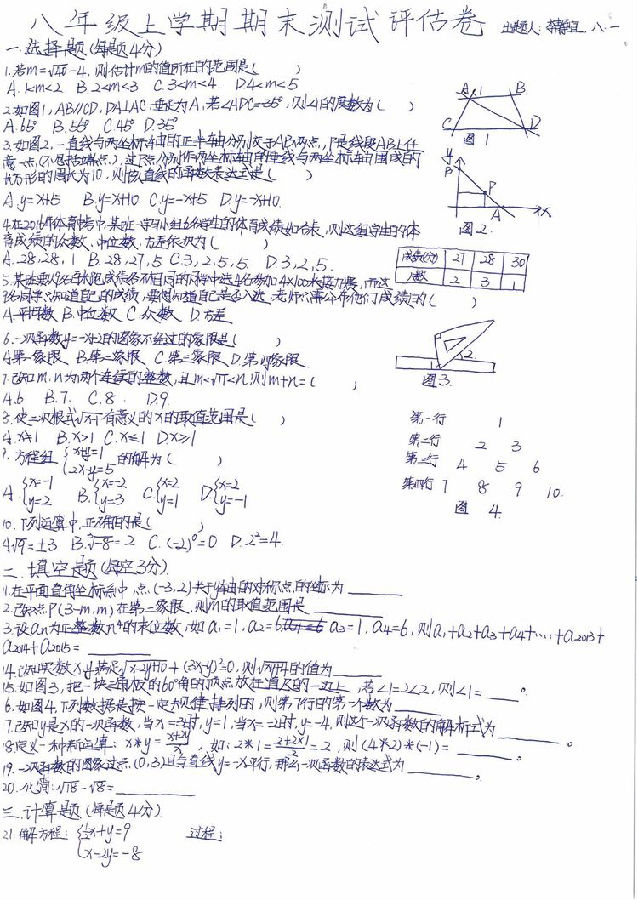 八年级上学期期末测试评估卷 出题人: 八.一
一.选择题(每题4分)
1.若m=√40-4,则估计m的值所在的范围是( )
A.1<m<2 B.2<m<3 C.3<m<4 D.4<m<5
2.如图1,AB//CD,DA⊥AC,垂足为A,若∠ADC=35°,则∠1的度数为( )
A.65° B.55° C.45° D.35°
3.如图2,一直线与两坐标轴的正半轴分别交于A,B两点,P是线段AB上任
意一点(不包括端点),过P点分别作两坐标轴的垂线与两坐标轴围成的
长方形的周长为10,则该直线的函数表达式是( )
A.y=x+5 B.y=x+10 C.y=-x+5 D.y=-x+10
4.在2016年体育中考中,某班一学习小组6名学生的体育成绩如右表,则这组学生的体
育成绩的众数,中位数,方差依次为( )
A.28,28,1 B.28,27,5 C.3,2.5,5 D.3,2,5
成绩(分) 21 28 30
人数 2 3 1
5.某
这
同学只知道自己的成绩,要想知道自己是否入选,老师只需公布他们成绩的( )
A.平均数 B.中位数 C.众数 D.方差
6.一次函数y=-x+2的图象不经过的象限是( )
A.第一象限 B.第二象限 C.第三象限 D.第四象限
7.已知m,n为两个连续的整数,且m<√11<n,则m+n=( )
A.6 B.7 C.8 D.9
8.使二次根式√x-1有意义的x的取值范围是( )
A.x≠1 B.x>1 C.x≤1 D.x≥1
9.方程组{x+y=1 2x+y=5 的解为( )
A.{x=-1 y=2 B.{x=-2 y=3 C.{x=2 y=1 D.{x=2 y=-1
10.下列运算中,正确的是( )
A.√9=±3 B.∛-8=-2 C.(-2)°=0 D.2²=4
A 1 B
C D
图1
y
B
P
A x
图2
1 2
图3
第一行 1
第二行 2 3
第三行 4 5 6
第四行 7 8 9 10
图4
二.填空题(每空3分)
11.在平面直角坐标系中,点(-3,2)关于y轴的对称点的坐标为
12.已知点P(3-m,m)在第二象限,则m的取值范围是
13.设an为正整数n⁴的末位数,如a1=1,a2=6,a3=1,a4=6,则a1+a2+a3+a4+…+a2013+
a2014+a2015=
14.已知实数x,y满足√x-2y+10+(3x-y)²=0,则√x+y的值为
15.如图3,把一块三角板的60°角的顶点放在直尺的一边上,若∠1=2∠2,则∠1= °
16.如图4,下列数据是按一定规律排列的,则第7行的第一个数为
17.已知y是x的一次函数,当x=3时,y=1,当x=-2时,y=-4,则这个一次函数的解析式为 。
18.定义一种新运算:x*y=(x+2y)/x,如:2*1=(2+2×1)/2=2,则(4*2)*(-1)= 。
19.一次函数的图象过点(0,3)且与直线y=-x平行,那么一次函数的表达式为 。
20.化简:√18-√8=
三.计算题(每题4分)
21.解方程:{½x+y=9 x-2y=-8 过程: